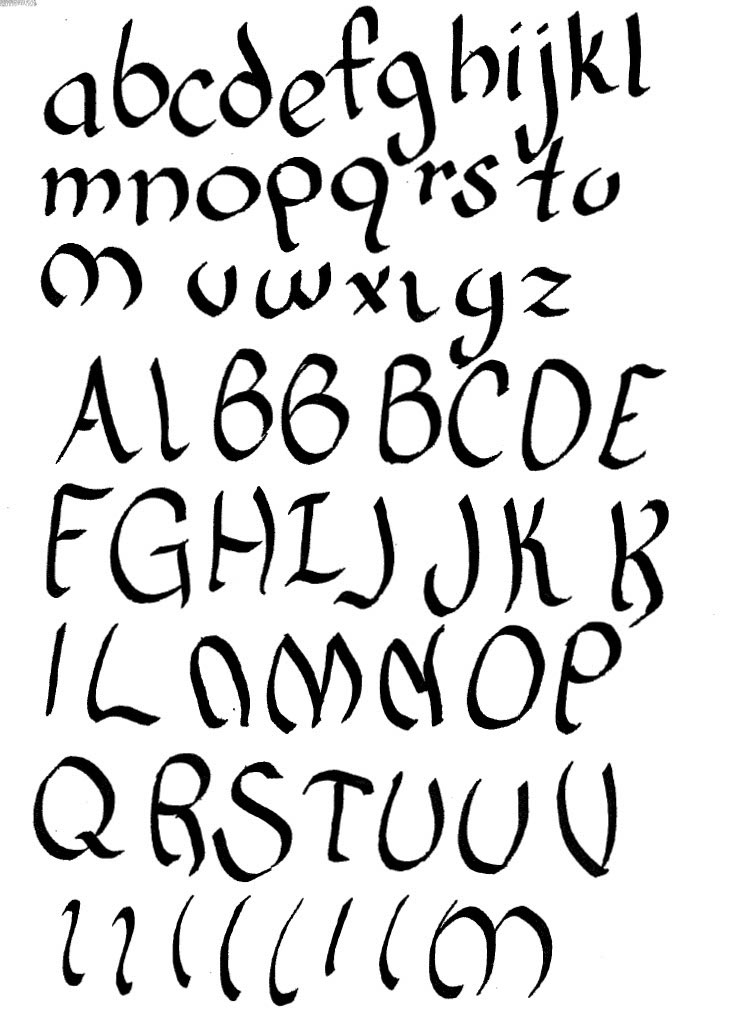 abcdefghijkl
mnopqrstu
m uwxıyz
AIBB BCDE
FGHIJJK K
IL nMNOP
QRSTUUV
m